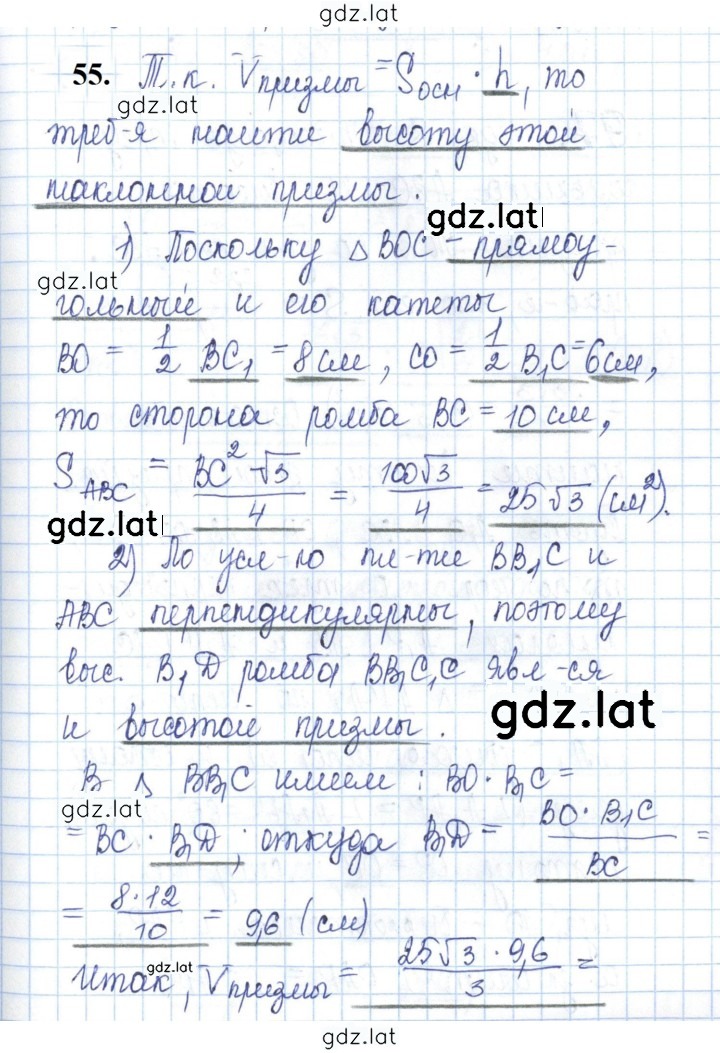 gdz.lat
55. Т.к. Vпризмы = Sосн · h, то
gdz.lat
треб-я найти высоту этой
наклонной призмы.
gdz.lat
1) Поскольку △ BOC – прямоу-
gdz.lat
гольный и его катеты
BO = 1/2 BC₁ = 8 см, CO = 1/2 B₁C = 6 см,
то сторона ромба BC = 10 см,
S ABC = BC²√3/4 = 100√3/4 = 25√3 (см²).
gdz.lat
2) По усл-ю пл-ти BB₁C и
ABC перпендикулярны, поэтому
выс. B₁D ромба BB₁C₁C явл-ся
и высотой призмы.
gdz.lat
В △ BB₁C имеем: BO · B₁C =
gdz.lat
= BC · B₁D; откуда B₁D = BO · B₁C/BC =
= 8·12/10 = 9,6 (см)
gdz.lat
Итак, Vпризмы = 25√3 · 9,6/3 =
gdz.lat